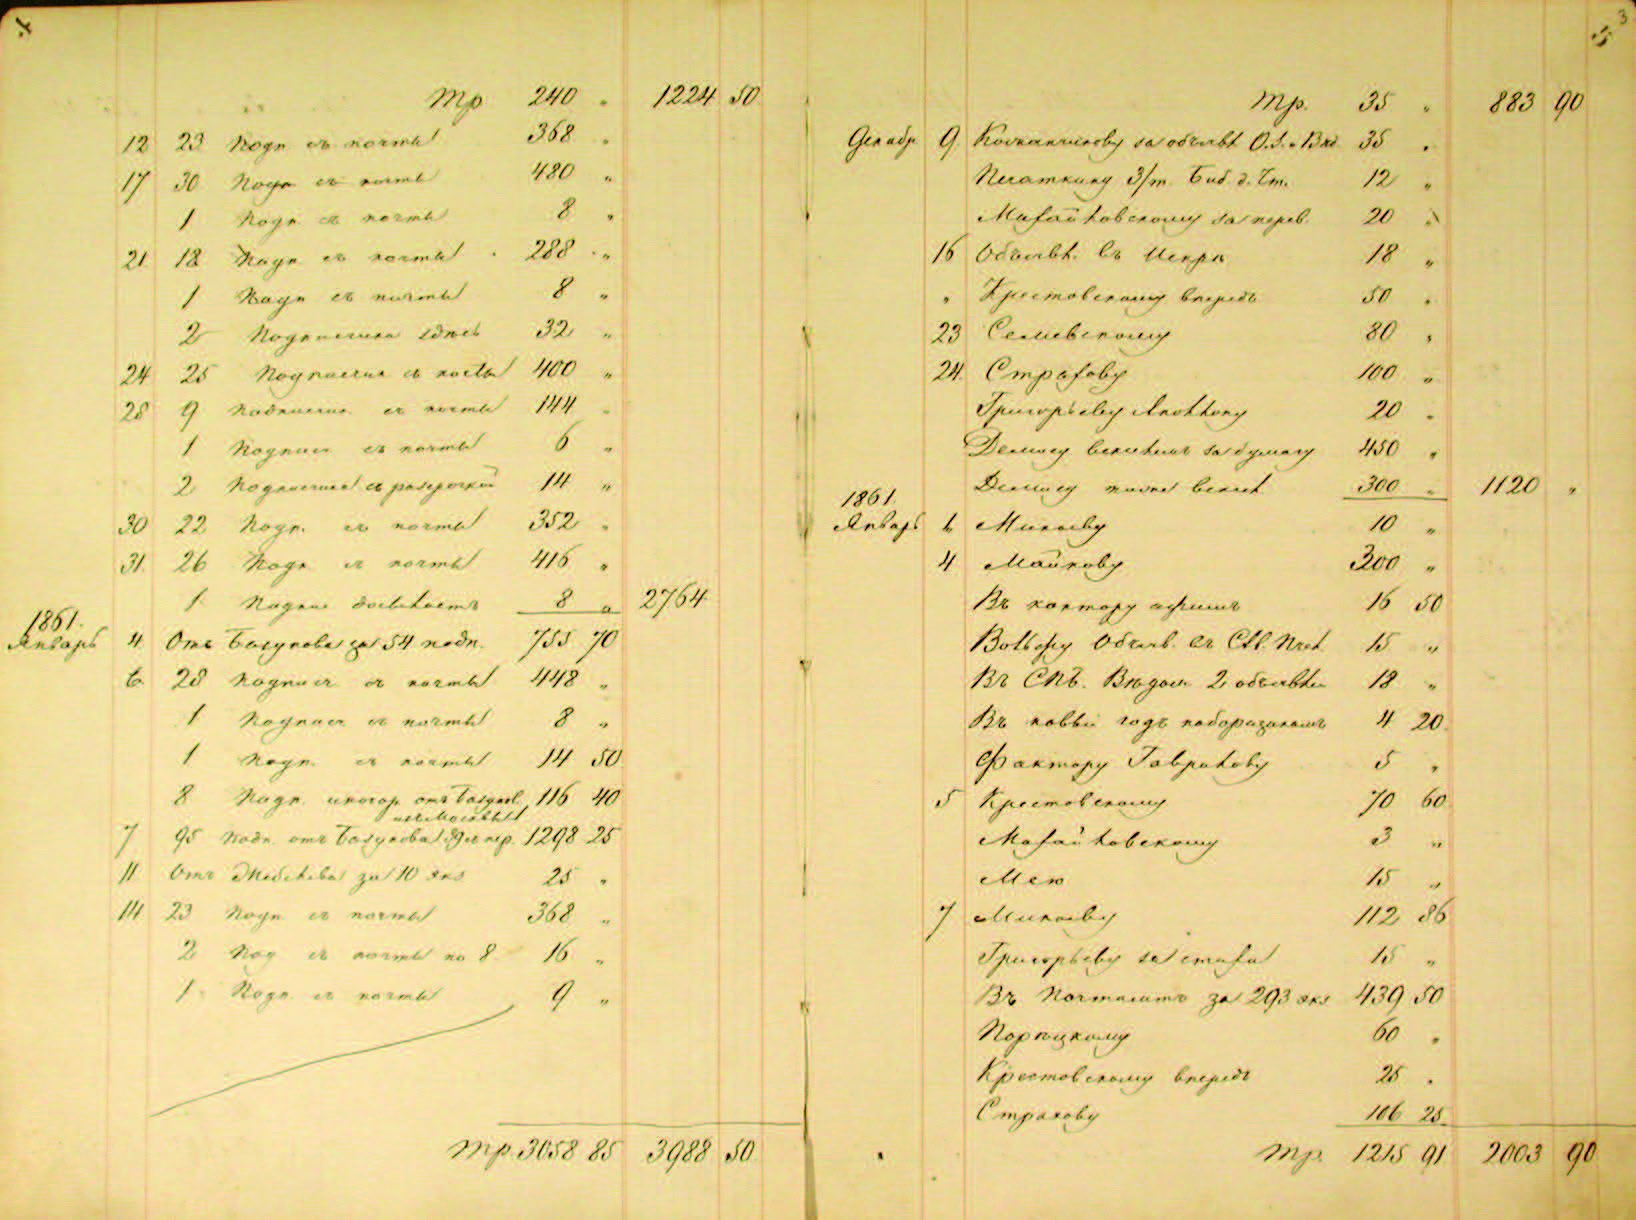 Тр 240 „ 1224 50
12 23 Подп съ почты 368 „
17 30 Подп съ почты 480 „
1 Подп съ почты 8 „
21 18 Подп съ почты 288 „
1 Подп съ почты 8 „
2 Подписчика здѣсь 32 „
24 25 Подписчик съ почты 400 „
28 9 Подписчик съ почты 144 „
1 Подписч съ почты 6 „
2 Подписчика съ разсрочкой 14 „
30 22 Подп. съ почты 352 „
31 26 Подп съ почты 416 „
1 Подпис 8 „ 2764
1861.
Январь 4 Отъ Базунова за 54 подп. 755 70
6 28 Подписч съ почты 448 „
1 Подписч съ почты 8 „
1 Подп. съ почты 14 50
8 Подп. иногор отъ Базунов. 116 40
изъ Москвы
7 95 Подп отъ Базунова 1298 25
11 Отъ за 10 экз 25 „
14 23 Подп съ почты 368 „
2 Под съ почты по 8 16 „
1 Подп. съ почты 9 „
Тр. 3058 85 3988 50
3
5
Тр. 35 „ 883 90
Декабр 9 за объявл О.З. 35 „
Печаткину 3/т. Биб. д. Чт. 12 „
за перев. 20 „
16 Объявл. въ Искрѣ 18 „
„ Крестовскому впередъ 50 „
23 Семевскому 80 „
24. Страхову 100 „
Григорьеву Аполлону 20 „
векселемъ за бумагу 450 „
300 „ 1120 „
1861.
Январь 1 Минаеву 10 „
4 Майкову 300 „
Въ контору 16 50
Вольфу Объяв. въ Сѣв. Пчел 15 „
Въ СПБ. Вѣдом 2 объявлен 18 „
Въ новый годъ наборщикамъ 4 20
Фактору Гаврилову 5 „
5 Крестовскому 70 60
3 „
Мею 15 „
7 Минаеву 112 86
Григорьеву за стихи 15 „
Въ Почтамтъ за 293 экз 439 50
Порѣцкому 60 „
Крестовскому впередъ 25 „
Страхову 106 25
Тр. 1215 91 2003 90